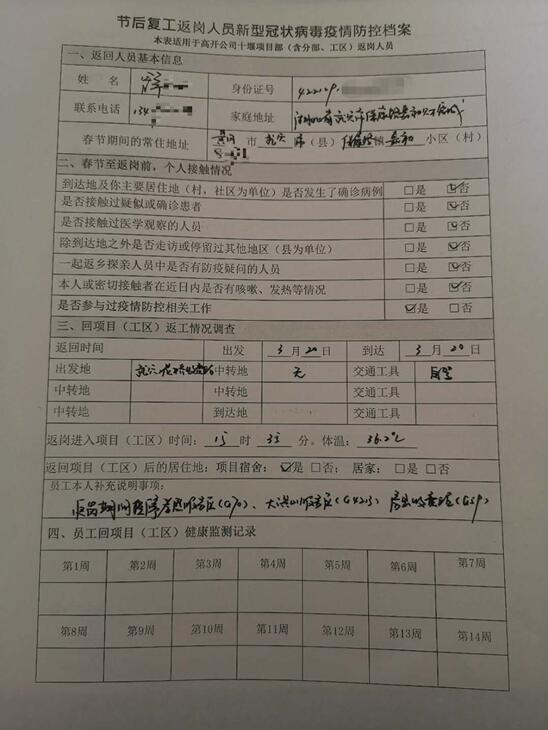 节后复工返岗人员新型冠状病毒疫情防控档案
本表适用于高开公司十堰项目部（含分部、工区）返岗人员
一、返回人员基本信息
姓 名 身份证号 422129
联系电话 134 家庭地址
春节期间的常住地址 黄冈 市 武穴 市（县） 镇 小区（村）
8-01
二、春节至返岗前，个人接触情况
到达地及你主要居住地（村，社区为单位）是否发生了确诊病例 □是 ☑否
是否接触过疑似或确诊患者 □是 ☑否
是否接触过医学观察的人员 □是 ☑否
除到达地之外是否走访或停留过其他地区（县为单位） □是 ☑否
一起返乡探亲人员中是否有防疫疑问的人员 □是 ☑否
本人或密切接触者在近日内是否有咳嗽、发热等情况 □是 ☑否
是否参与过疫情防控相关工作 ☑是 □否
三、回项目（工区）返工情况调查
返回时间 出发 3月20日 到达 3月20日
出发地 武穴 中转地 无 交通工具 自驾
中转地 中转地 交通工具
中转地 到达地 交通工具
返岗进入项目（工区）时间：15时35分。体温：36.2℃
返回项目（工区）后的居住地：项目宿舍：☑是 □否； 居家：□是 □否
员工本人补充说明事项：
返岗期间 服务区(G70)、大洪山服务区(G4213) (G59)
四、员工回项目（工区）健康监测记录
第1周 第2周 第3周 第4周 第5周 第6周 第7周
第8周 第9周 第10周 第11周 第12周 第13周 第14周